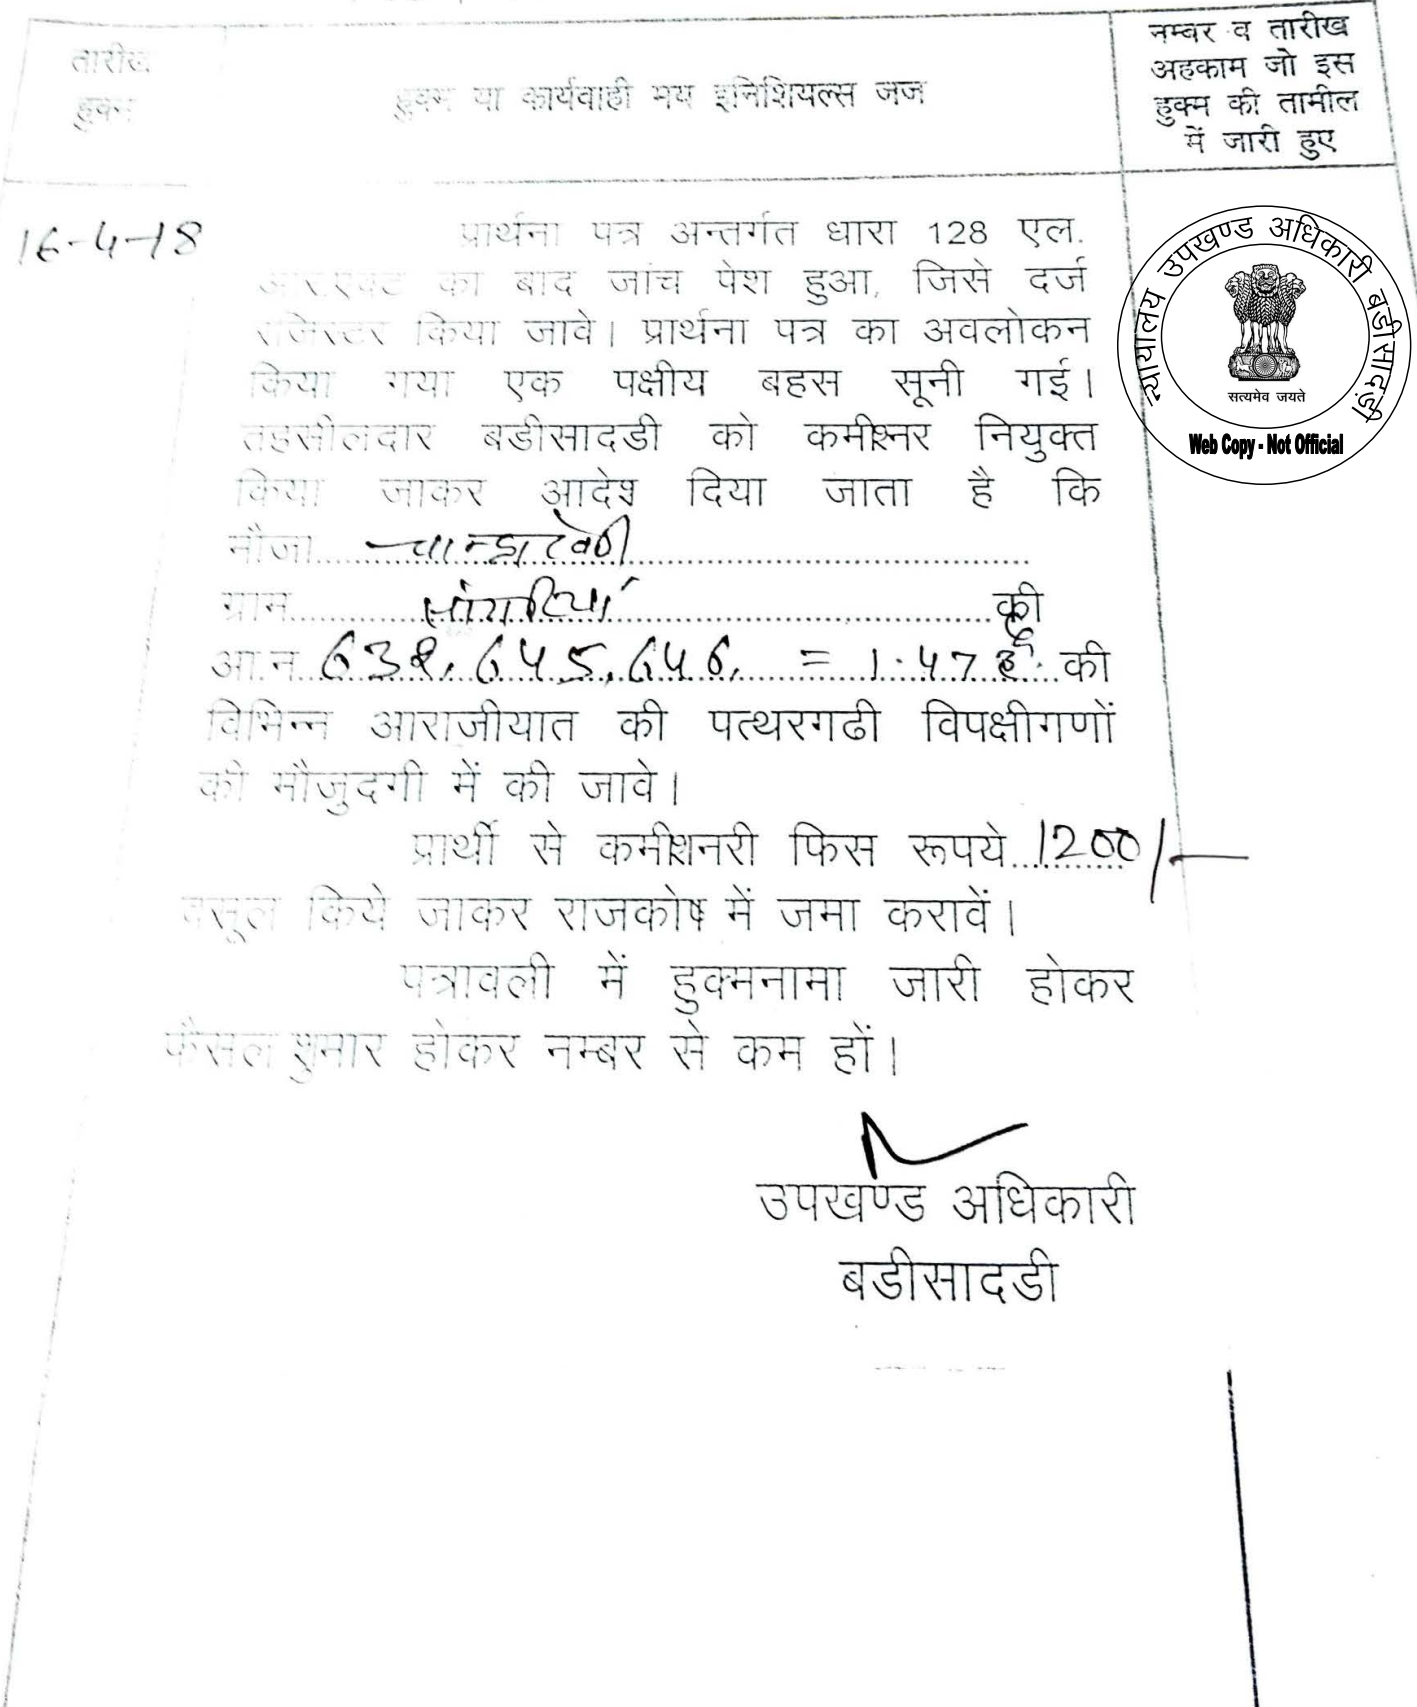 तारीख
हुक्म
हुक्म या कार्यवाही मय इनिशियल्स जज
नम्बर व तारीख
अहकाम जो इस
हुक्म की तामील
में जारी हुए
16-4-18
प्रार्थना पत्र अन्तर्गत धारा 128 एल.
आर.एक्ट का बाद जांच पेश हुआ, जिसे दर्ज
रजिस्टर किया जावे। प्रार्थना पत्र का अवलोकन
किया गया एक पक्षीय बहस सूनी गई।
तहसीलदार बडीसादडी को कमीश्नर नियुक्त
किया जाकर आदेश दिया जाता है कि
मौजा
ग्राम की
आ.न. 645, 646, = 1.47 की
विभिन्न आराजीयात की पत्थरगढी विपक्षीगणों
की मौजुदगी में की जावे।
प्रार्थी से कमीशनरी फिस रूपये 1200/-
वसूल किये जाकर राजकोष में जमा करावें।
पत्रावली में हुक्मनामा जारी होकर
फैसल शुमार होकर नम्बर से कम हों।
उपखण्ड अधिकारी
बडीसादडी
न्यायालय उपखण्ड अधिकारी बडीसादड़ी
सत्यमेव जयते
Web Copy - Not Official